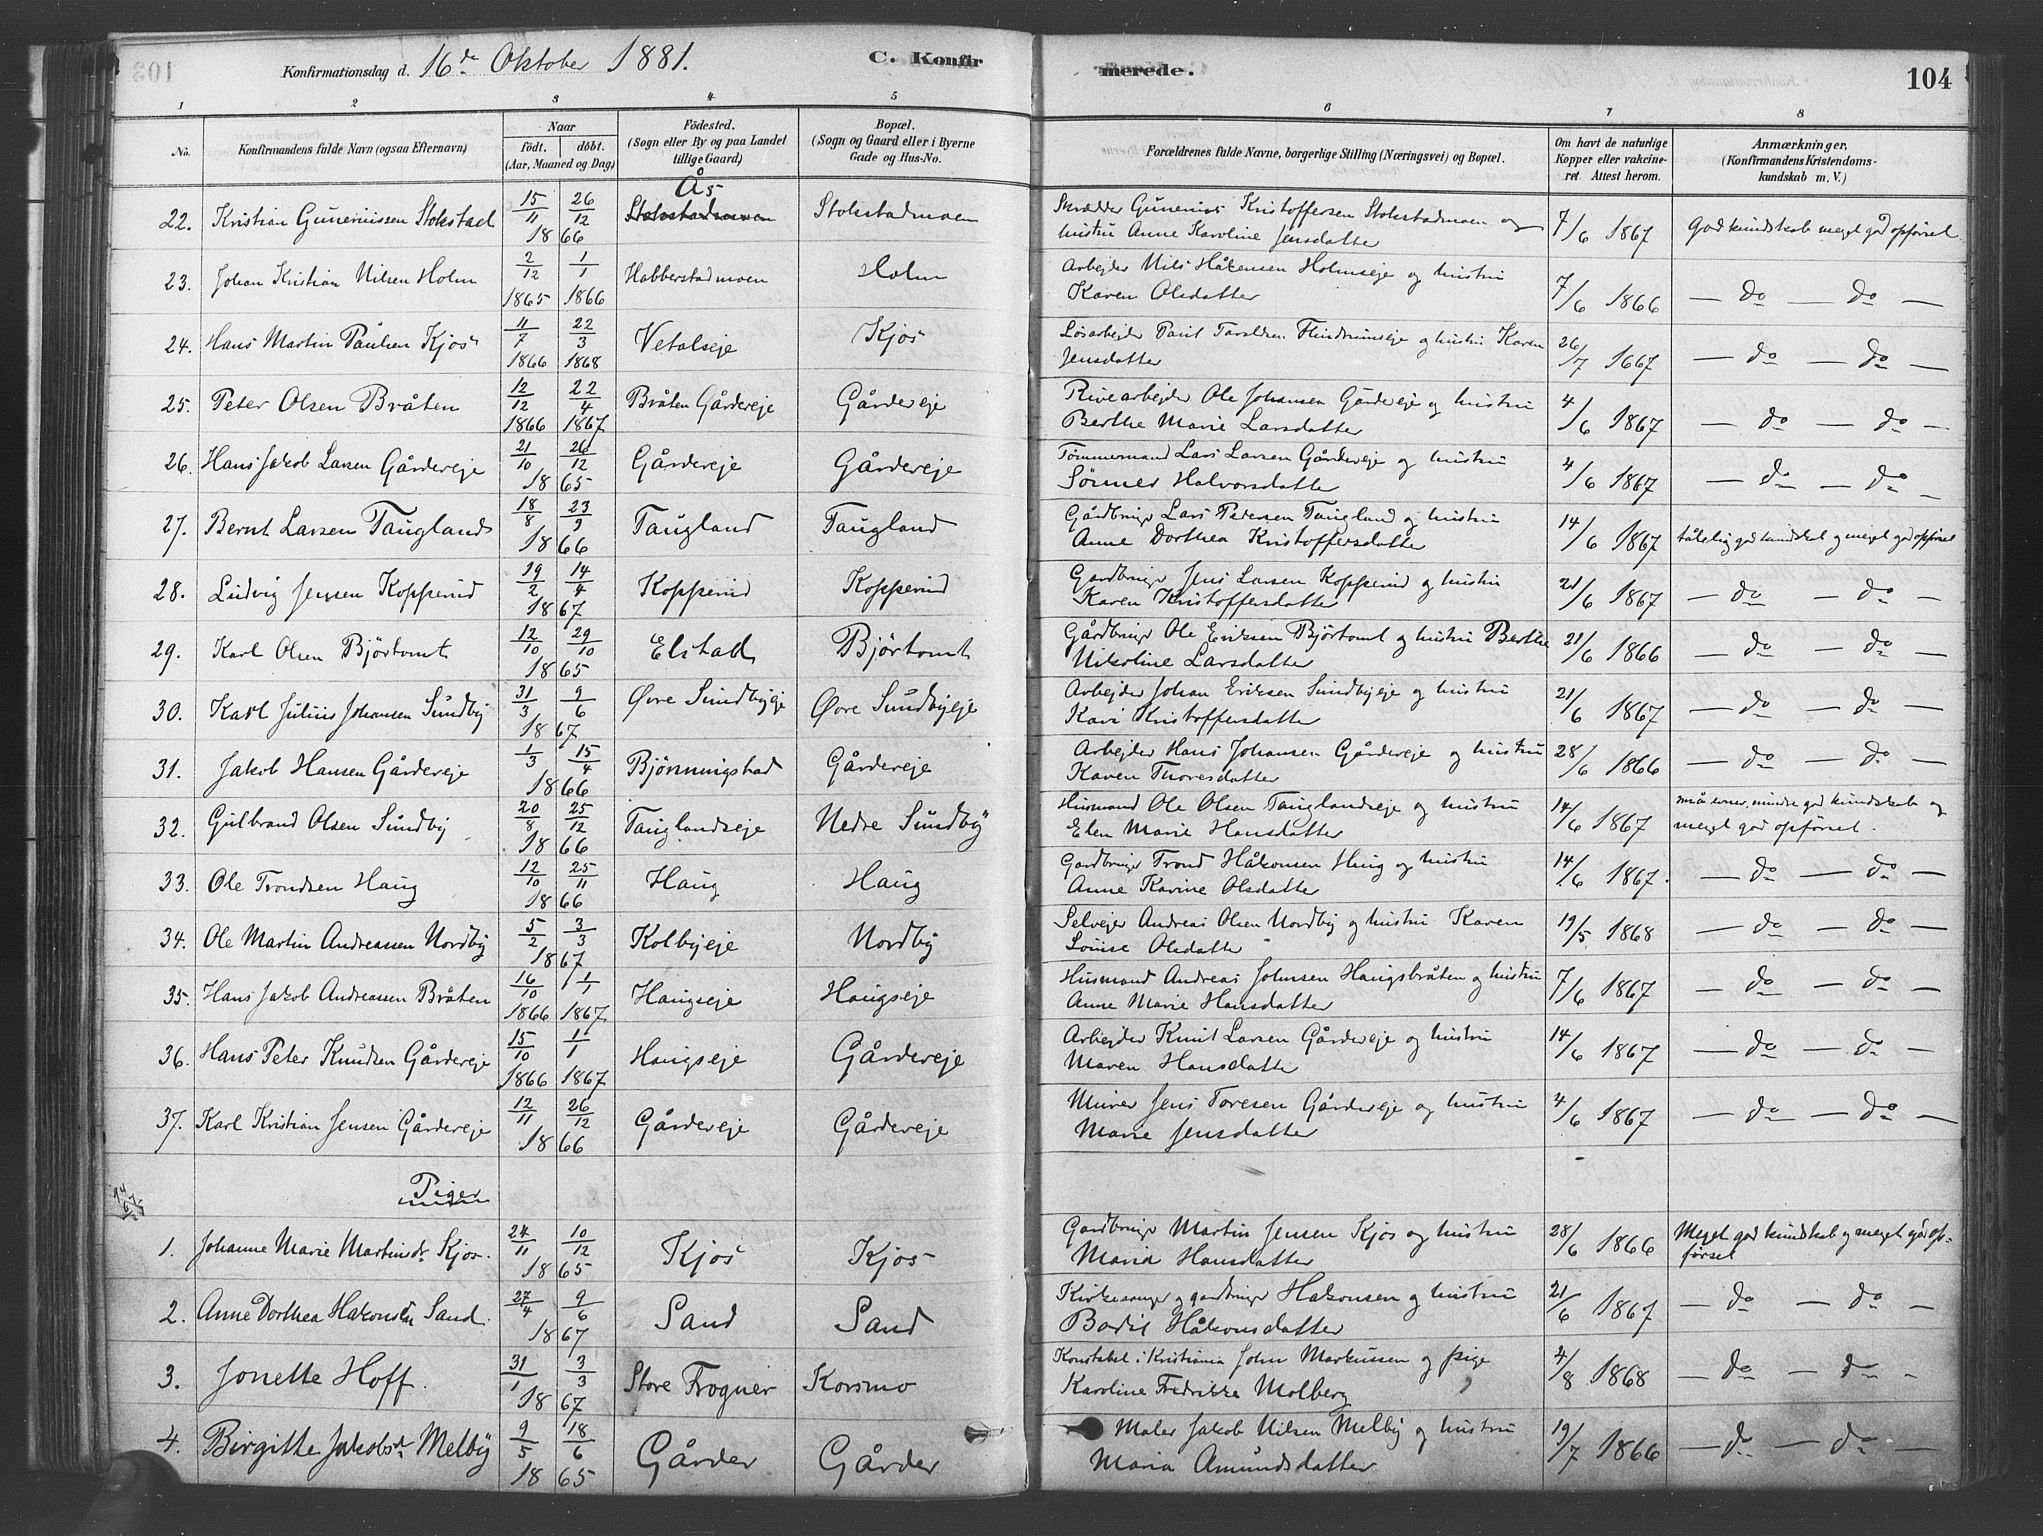 Konfirmationsdag d. 16de Oktober 1881. C. Konfirmerede. 104
1 2 3 4 5 6 7 8
No. Konfirmandens fulde Navn (ogsaa Efternavn) Naar födt. döbt. (Aar, Maaned og Dag) Födested. (Sogn eller By og paa Landet tillige Gaard) Bopæl. (Sogn og Gaard eller i Byerne Gade og Hus-No. Forældrenes fulde Navne, borgerlige Stilling (Næringsvei) og Bopæl. Om havt de naturlige Kopper eller vakcineret. Attest herom. Anmærkninger. (Konfirmandens Kristendomskundskab m. V.)
22. Kristian Gunerinssen Stokstad 15/11 26/12 1866 Ås Stokstadmoen Stokstadmoen Skrædder Gunerius Kristoffersen Stokstadmoen og hustru Anne Karoline Jensdatter 7/6 1867 God kundskab meget god opförsel
23. Johan Kristian Nilsen Holm 2/12 1865 1/1 1866 Habberstadmoen Holm Arbejder Nils Håkensen Holmseje og hustru Karen Olsdatter 7/6 1866 — do — do —
24. Hans Martin Paulsen Kjos 11/7 1866 22/3 1868 Vetalseje Kjos Lösarbejder Paul Taraldsen Flindrumseje og hustru Karen Jensdatter 26/7 1667 — do — do —
25. Peter Olsen Bråten 12/12 1866 22/4 1867 Bråten Gårdereje Gårdereje Rivearbejder Ole Johansen Gårdereje og hustru Berthe Marie Larsdatter 4/6 1867 — do — do —
26. Hans Jakob Larsen Gårdereje 21/10 26/12 1865 Gårdereje Gårdereje Tömmermand Lars Larsen Gårdereje og hustru Sönnev Halvorsdatter 4/6 1867 — do — do —
27. Bernt Larsen Taugland 18/8 23/9 1866 Taugland Taugland Gårdbruger Lars Pedersen Taugland og hustru Anne Dorthea Kristoffersdatter 14/6 1867 tålelig god kundskab og meget god opförsel
28. Ludvig Jensen Kopperud 19/2 14/4 1867 Kopperud Kopperud Gardbruger Jens Larsen Kopperud og hustru Karen Kristoffersdatter 21/6 1867 — do — do —
29. Karl Olsen Björtomt 12/10 29/10 1865 Elstad Björtomt Gårdbruger Ole Eriksen Björtomt og hustru Berthe Nikoline Larsdatter 21/6 1866 — do — do —
30. Karl Julius Johansen Sundby 31/3 9/6 1867 Øvre Sundbyeje Øvre Sundbyeje Arbejder Johan Eriksen Sundbyeje og hustru Kari Kristoffersdatter 21/6 1867 — do — do —
31. Jakob Hansen Gårdereje 1/3 15/4 1866 Björnungstad Gårdereje Arbejder Hans Johansen Gårdereje og hustru Karen Thoresdatter 28/6 1866 — do — do —
32. Gulbrand Olsen Sundby 20/8 25/12 1866 Tauglandseje Nedre Sundby Husmand Ole Olsen Tauglandseje og hustru Elen Marie Hansdatter 14/6 1867 små evner, mindre god kundskab og meget god opförsel.
33. Ole Trondsen Haug 12/10 25/11 1866 Haug Haug Gardbruger Trond Håkonsen Haug og hustru Anne Karine Olsdatter 14/6 1867. — do — do —
34. Ole Martin Andreassen Nordby 5/2 3/3 1867 Kolbyeje Nordby Selvejer Andreas Olsen Nordby og hustru Karen Louise Olsdatter 19/5 1868 — do — do —
35. Hans Jakob Andreassen Bråten 16/10 1866 1/1 1867 Haugseje Haugseje Husmand Andreas Johnsen Haugsbråten og hustru Anne Marie Hansdatter 7/6 1867 — do — do —
36. Hans Peter Knudsen Gårdereje 15/10 1866 1/1 1867 Haugseje Gårdereje Arbejder Knut Larsen Gårdereje og hustru Maren Hansdatter 14/6 1867 — do — do —
37. Karl Kristian Jensen Gårdereje 12/11 26/12 1866 Gårdereje Gårdereje Murer Jens Toresen Gårdereje og hustru Marie Jensdatter 4/6 1867 — do — do —
Piger
1. Johanne Marie Martinsdr. Kjos. 24/11 10/12 1865 Kjos Kjos Gardbruger Martin Jensen Kjos og hustru Maria Hansdatter 28/6 1866 Meget god kundskab og meget god opförsel
2. Anne Dorthea Hakonsdr. Sand. 27/4 9/6 1867 Sand Sand Kirkesanger og gardbruger Hakonsen og hustru Bodil Håkonsdatter 21/6 1867 — do — do —
3. Jonette Hoff. 31/1 3/3 1867 Store Frogner Korsmo Konstabel i Kristiania John Markussen og pige Karoline Fredrikke Molberg 4/8 1868 — do — do —
4. Birgitte Jakobsdr. Melby 9/5 18/6 1865 Gårder Gårder Maler Jakob Nilsen Melby og hustru Maria Amundsdatter 19/7 1866 — do — do —